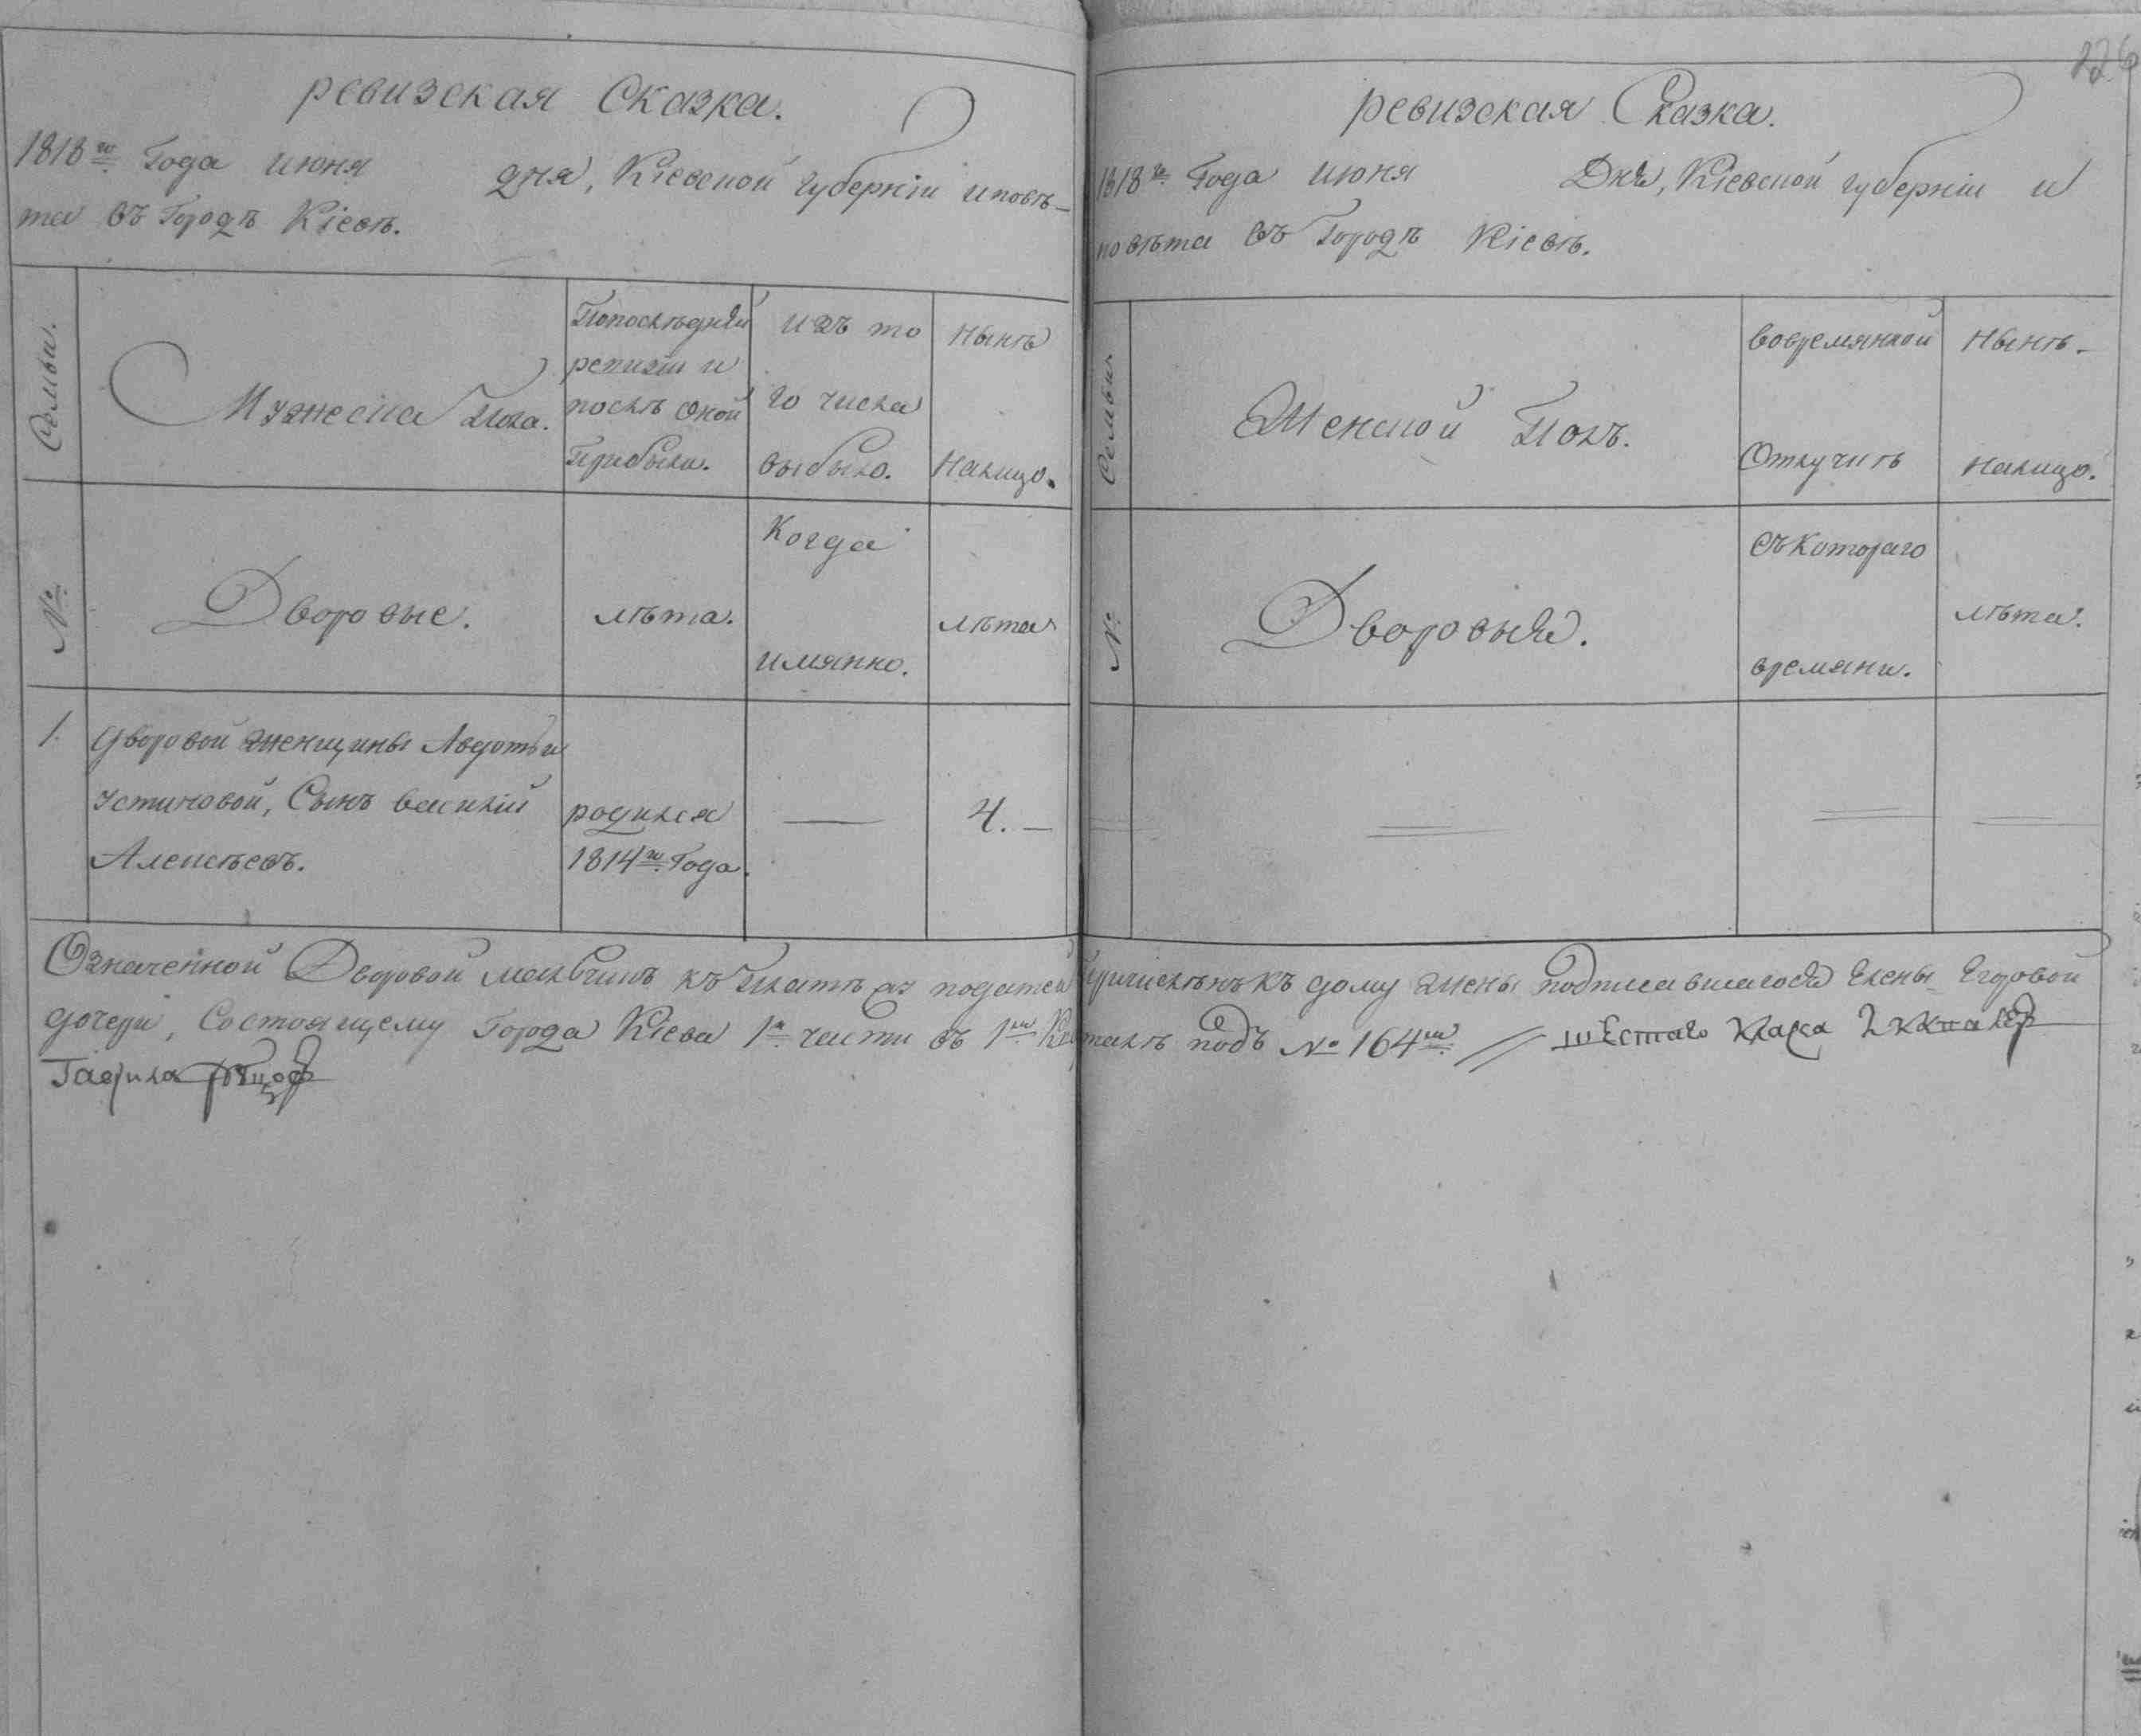 226
ревизская Сказка.
1818го Года июня дня, Кіевской губерніи и повѣ-
та въ Городѣ Кіевѣ.
Семьи.
Мужеска пола.
По послѣдней
ревизіи и
послѣ оной
Прибыли.
изъ то
го числа
выбыло.
Нынѣ
Налицо.
№
Дворовые.
лѣта.
Когда
имянно.
лѣта
1.
дворовой женщины Авдотьи
Устиновой, Сынъ василій
Алексѣевъ.
родился
1814го Года.
4.
ревизская Сказка.
1818го Года июня Дня, Кіевской губерніи и
повѣта въ Городѣ Кіевѣ.
Семьи
Женской Полъ.
вовремянной
Отлучкѣ
Нынѣ
налицо.
№
Дворовыя.
съ Котораго
времяни.
лѣта.
Означенной Дворовой мальчикъ къ Платежу податей Причисленъ къ дому жены подписавшагося Елены Егоровой
дочери, Состоящему Города Кіева 1й части въ 1мъ Кварталѣ подъ № 164мъ // шестаго Класа
Гаврила